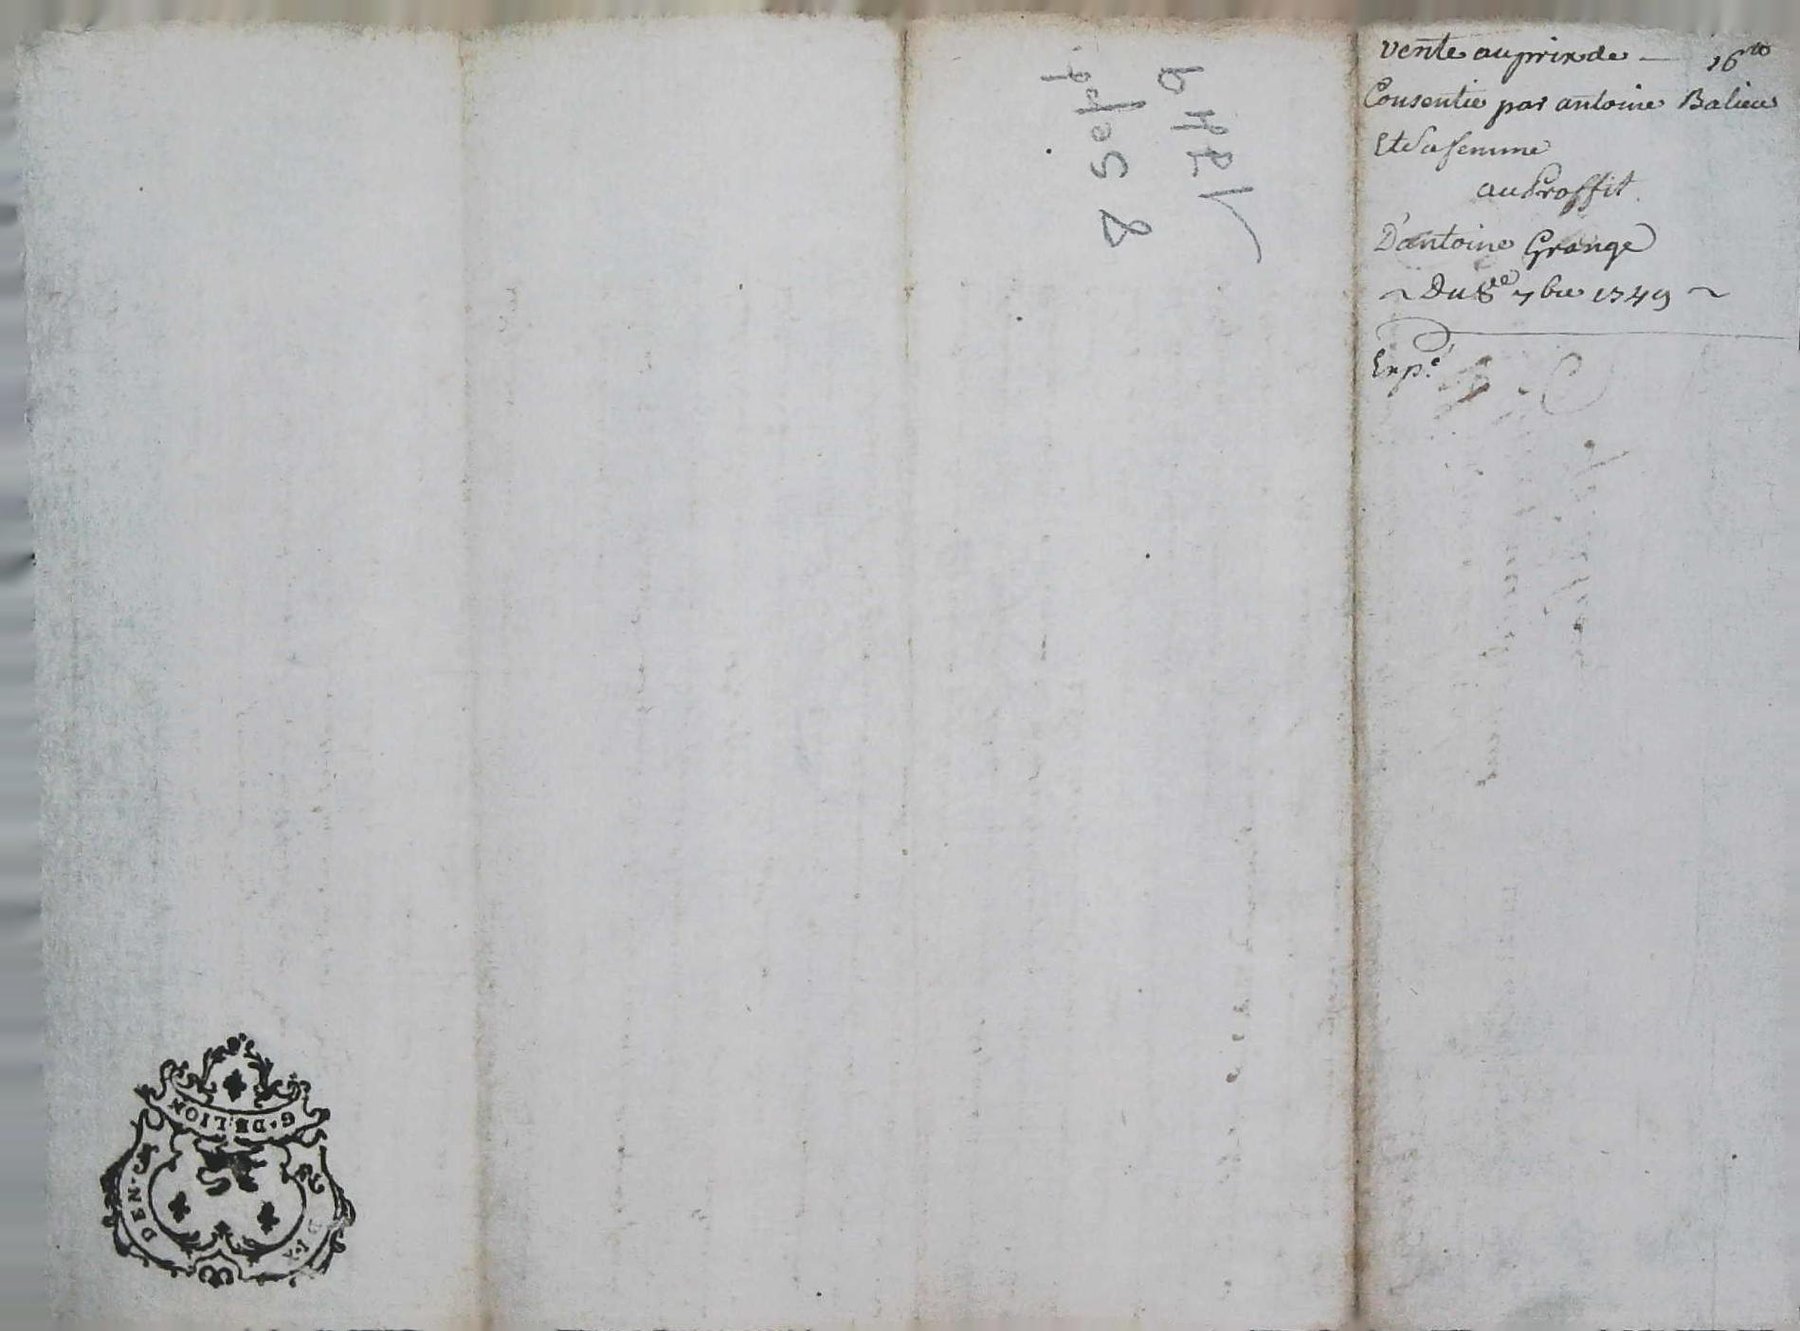 vente au prix de — 16ᵗᵗ
Consentie par antoine Balieu
Et Sa femme
au Proffit
D'antoine Grange
~ Du 8ᵉ 7bre 1749 ~
Expé
8 Sepb
1749
G·DE·LION
DEN·